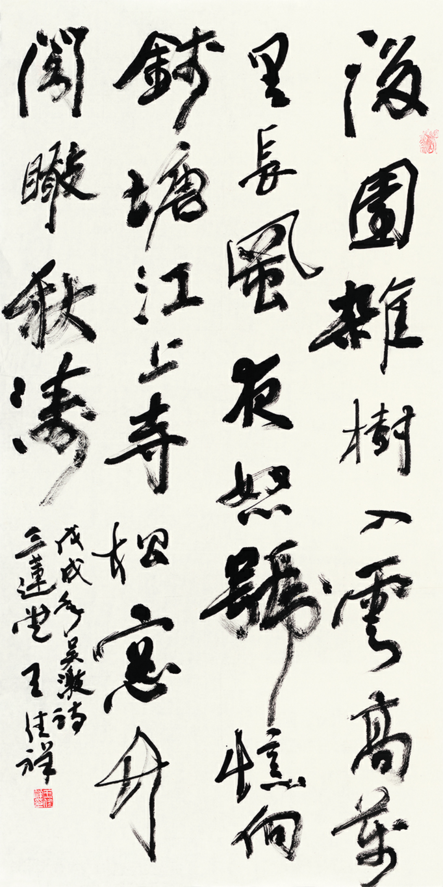 後園雜樹入雲高萬
里長風夜怒號憶向
錢塘江上寺松窗竹
閣瞰秋濤
戊戌冬吴激詩
三蓮堂王佳祥